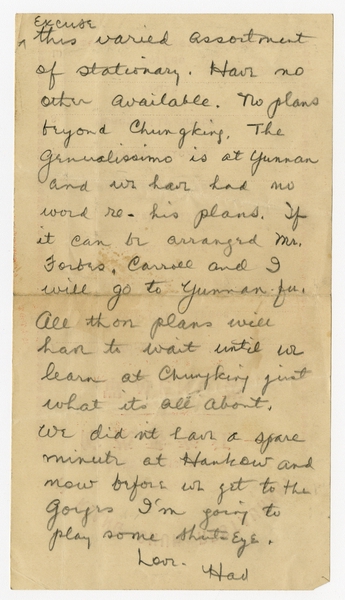 Excuse
this varied assortment
of stationary. Have no
other available. No plans
beyond Chungking. The
Generalissimo is at Yunnan
and we have had no
word re- his plans. If
it can be arranged Mr.
Forbes, Carroll and I
will go to Yunnan-fu.
All thos plans will
have to wait until we
learn at Chungking just
what its all about.
We did n't have a spare
minute at Hankow and
now before we get to the
Gorges I'm going to
play some shut-Eye.
Love.
Hav